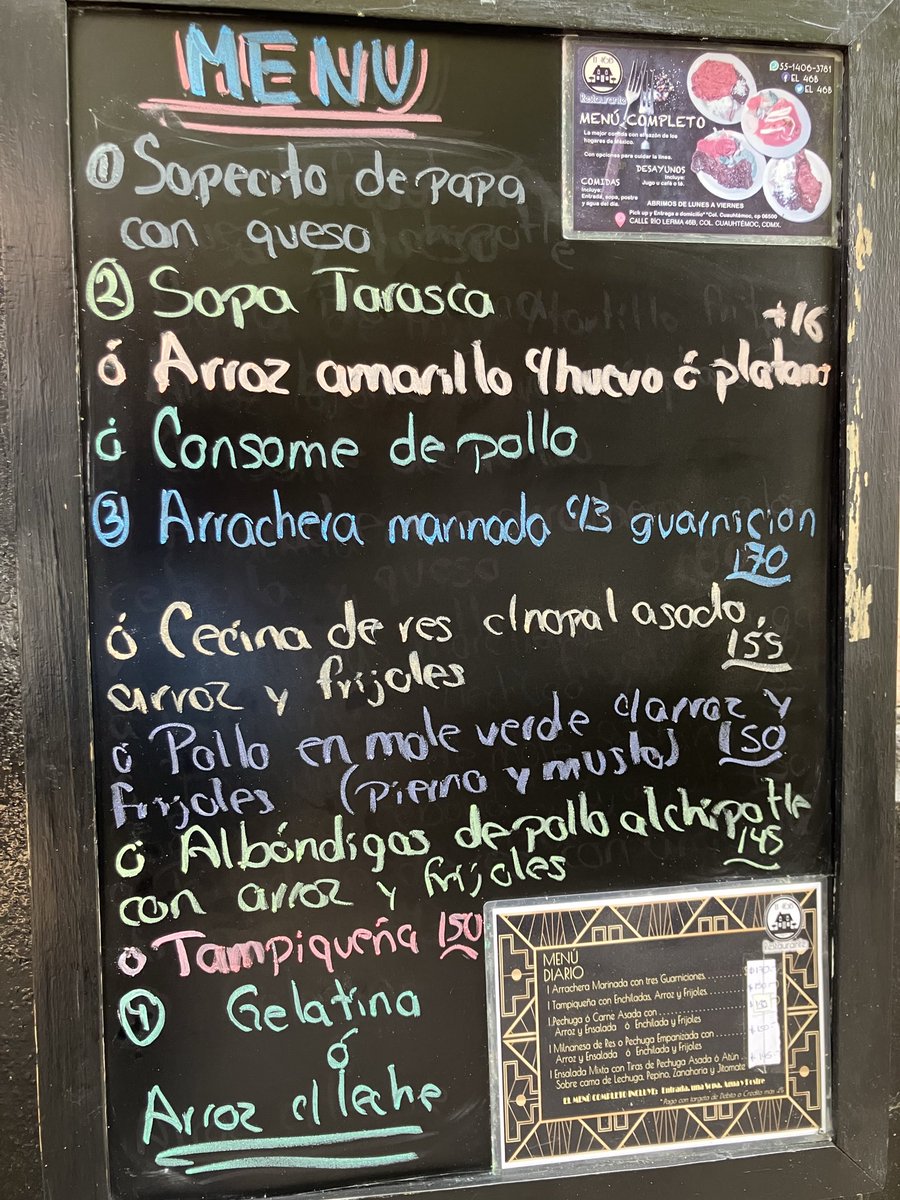 MENU
① Sopecito de papa
con queso
② Sopa Tarasca
+16
ó Arroz amarillo c/huevo ó platano
ó Consome de pollo
③ Arrachera marinada c/3 guarnicion
170
ó Cecina de res c/nopal asado,
155
arroz y frijoles
ó Pollo en mole verde c/arroz y
frijoles (pierna y muslo) 150
ó Albóndigas de pollo al chipotle
145
con arroz y frijoles
o Tampiqueña 150
④ Gelatina
ó
Arroz c/leche
El 46B
Restaurante
55-1406-3781
EL 46B
EL 46B
MENÚ COMPLETO
La mejor comida con el sazón de los
hogares de México.
Con opciones para cuidar la línea.
DESAYUNOS
Incluye:
Jugo u café o té.
COMIDAS
Incluye:
Entrada, sopa, postre
y agua del día.
ABRIMOS DE LUNES A VIERNES
Pick up y Entrega a domicilio**Col. Cuauhtémoc, cp 06500
CALLE RÍO LERMA 46B, COL. CUAUHTÉMOC, CDMX.
El 46B
Restaurante
MENÚ
DIARIO
1 Arrachera Marinada con tres Guarniciones
1 Tampiqueña con Enchiladas, Arroz y Frijoles
1 Pechuga ó Carne Asada con
Arroz y Ensalada ó Enchilada y Frijoles
1 Milnanesa de Res o Pechuga Empanizada con
Arroz y Ensalada ó Enchilada y Frijoles
$145.-
1 Ensalada Mixta con Tiras de Pechuga Asada ó Atún
Sobre cama de Lechuga, Pepino, Zanahoria y Jitomate
EL MENÚ COMPLETO INCLUYE: Entrada, una Sopa, Agua y Postre
*Pago con tarjeta de Debito o Credito mas